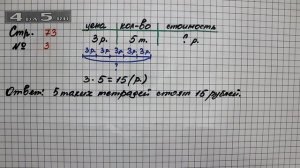 4 дз 5. ru
Стр. 73
№ 3
цена кол-во стоимость
3 р. 5 т. ? р.
3 р. 3 р. 3 р. 3 р. 3 р.
?
3 · 5 = 15 (р.)
Ответ: 5 таких тетрадей стоят 15 рублей.